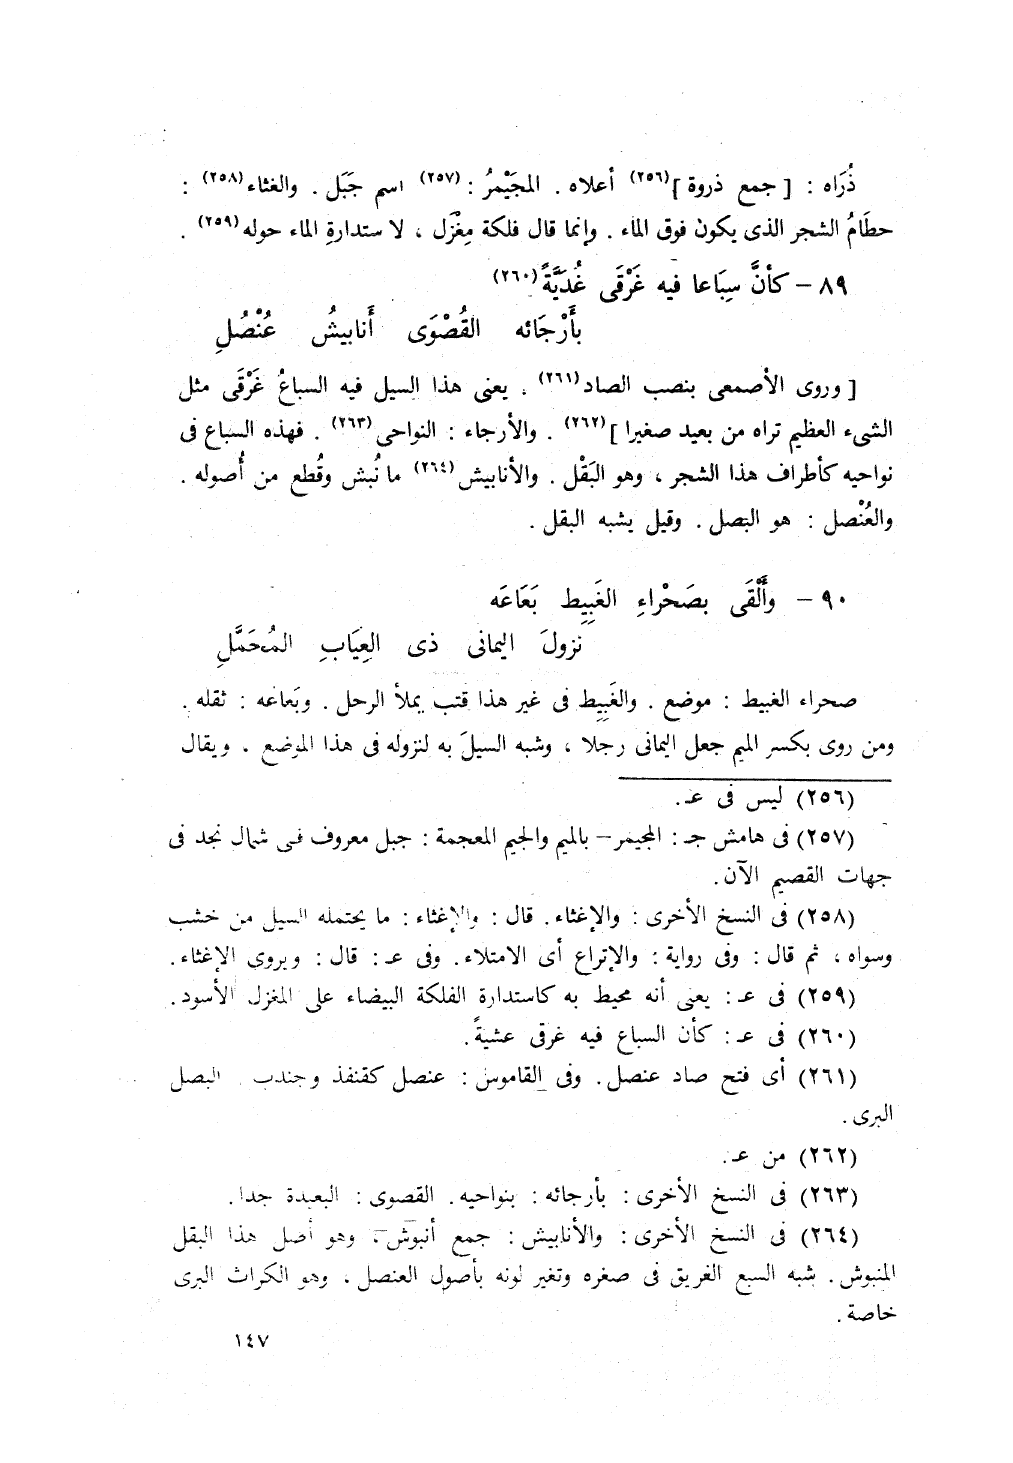 ذُرَاه : [ جمع ذروة ](٢٥٦) أعلاه . المجَيْمرُ : (٢٥٧) اسم جَبَل . والغثاء(٢٥٨) :
حطَامُ الشجر الذى يكون فوق الماء . وإنما قال فلكة مِغْزَل ، لاستدارةِ الماء حوله(٢٥٩) .
٨٩ – كأنَّ سِبَاعا فيه غَرْقَى غُدَيَّةً(٢٦٠)
بأَرْجَائه القُصْوَى أَنابيشُ عُنْصُلِ
[ وروى الأصمعى بنصب الصاد(٢٦١) . يعنى هذا السيل فيه السباعُ غَرْقَى مثل
الشىء العظيم تراه من بعيد صغيرا ](٢٦٢) . والأرجاء : النواحى(٢٦٣) . فهذه السباع فى
نواحيه كأطراف هذا الشجر ، وهو البَقْل . والأنابيش(٢٦٤) ما نُبش وقُطع من أُصوله .
والعُنْصل : هو البَصل . وقيل يشبه البقل .
٩٠ – وأَلْقَى بصَحْراءِ الغَبِيط بَعَاعَه
نزولَ اليمانى ذى العِيَابِ المُحَمَّلِ
صحراء الغبيط : موضع . والغَبِيط فى غير هذا قتب يملأ الرحل . وبَعاعه : ثقله .
ومن روى بكسر الميم جعل اليمانى رجلا ، وشبه السيلَ به لنزوله فى هذا الموضع . ويقال
(٢٥٦) ليس فى عـ.
(٢٥٧) فى هامش جـ : المجيمر – بالميم والجيم المعجمة : جبل معروف فى شمال نجد فى
جهات القصيم الآن.
(٢٥٨) فى النسخ الأخرى : والإغثاء. قال : والإغثاء : ما يحتمله السيل من خشب
وسواه ، ثم قال : وفى رواية : والإتراع أى الامتلاء. وفى عـ : قال : ويروى الإغثاء.
(٢٥٩) فى عـ : يعنى أنه محيط به كاستدارة الفلكة البيضاء على المغزل الأسود.
(٢٦٠) فى عـ : كأن السباع فيه غرقى عشيةً.
(٢٦١) أى فتح صاد عنصل. وفى القاموس : عنصل كقنفذ وجندب البصل
البرى.
(٢٦٢) من عـ.
(٢٦٣) فى النسخ الأخرى : بأرجائه : بنواحيه. القصوى : البعيدة جدا.
(٢٦٤) فى النسخ الأخرى : والأنابيش : جمع أنبوش، وهو أصل هذا البقل
المنبوش. شبه السبع الغريق فى صغره وتغير لونه بأصول العنصل، وهو الكراث البرى
خاصة.
١٤٧